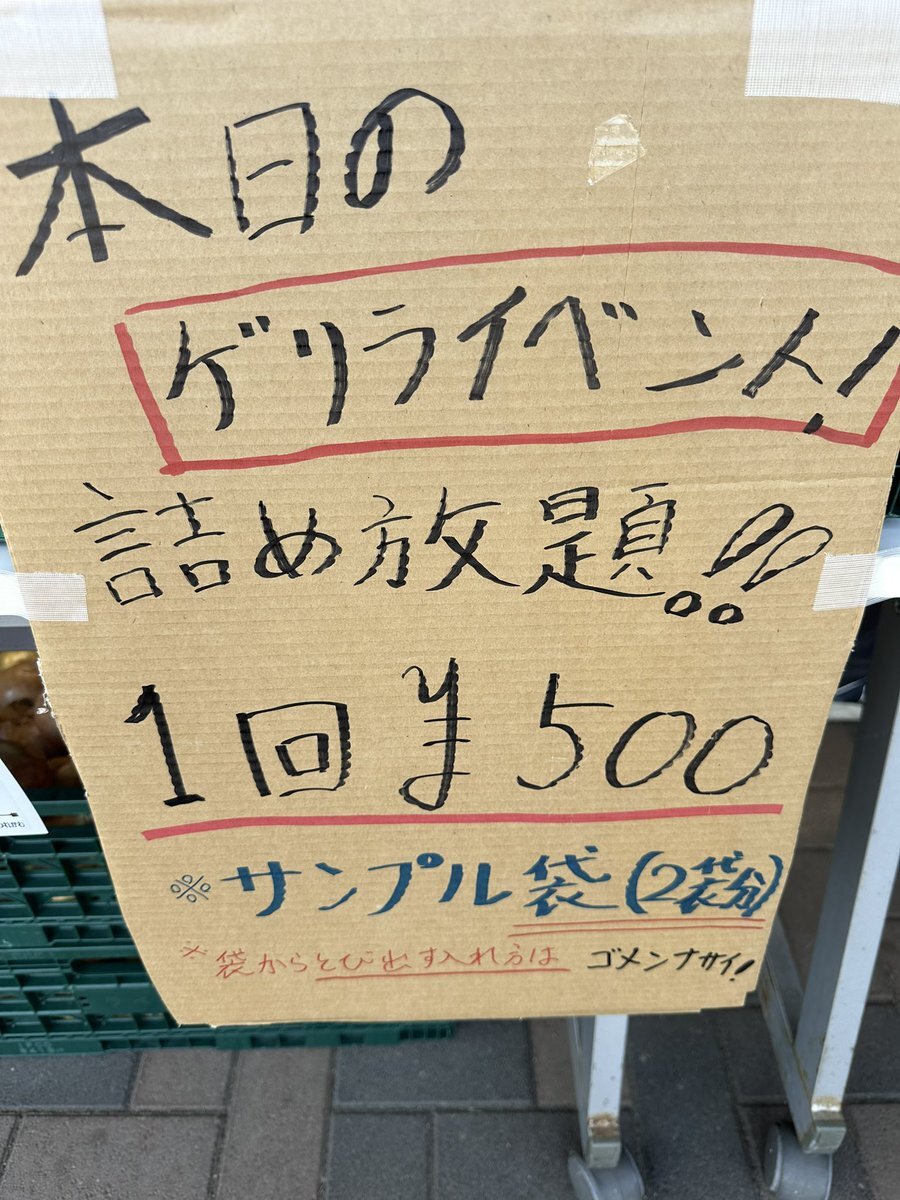 本日の
ゲリライベント!
詰め放題!!
1回 ¥500
※サンプル袋(2袋分)
※袋からとび出す入れ方は ゴメンナサイ!